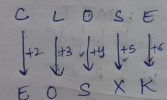 C L O S E
+2 +3 +4 +5 +6
E O S X K